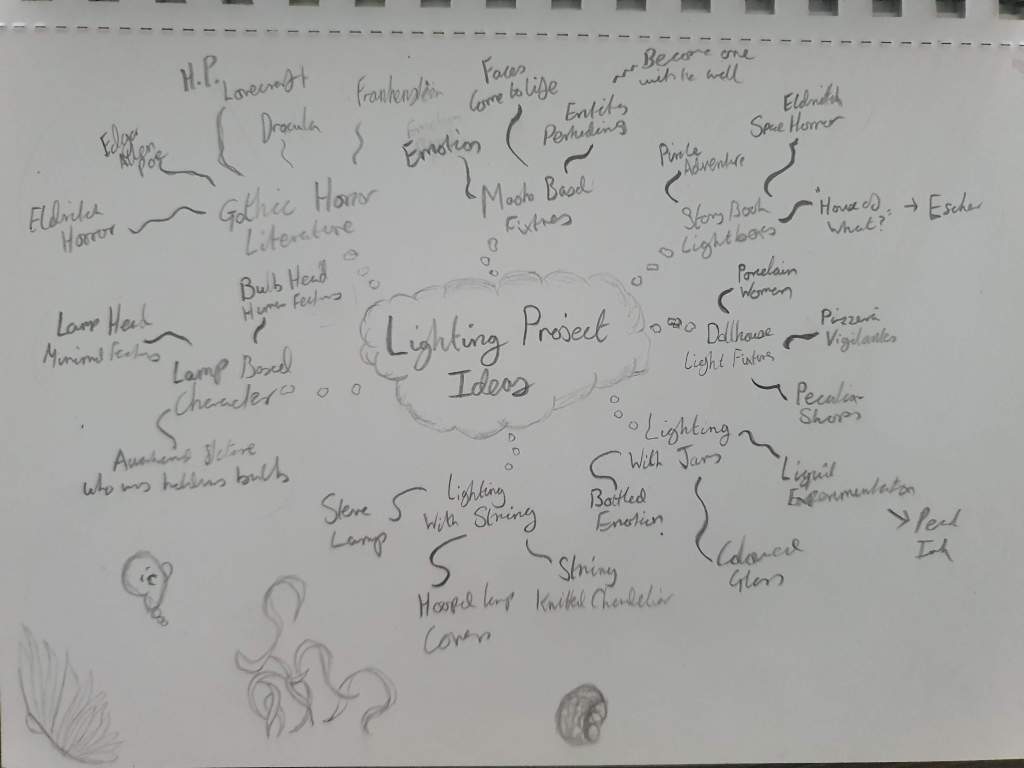 Lighting Project
Ideas
Gothic Horror
Literature
Eldritch
Horror
Edgar
Allen
Poe
H.P.
Lovecraft
Dracula
Frankenstein
Based
Emotion
Faces
Come to Life
Entity
Become one
Story Book
Lightboxes
Adventure
Eldritch
Space Horror
House of
What?
→ Escher
Dollhouse
Light Fixtures
Porcelain
Women
Pizzeria
Vigilantes
Peculiar
Shops
Lighting
With Jars
Bottled
Emotion
Coloured
Glass
Liquid
Experimentation
Ink
Lighting
With String
Lamp
Hooped lamp
Covers
String
Knitted Chandelier
Lamp Based
Character
Bulb Head
Human Features
Lamp Head
who was bulbs